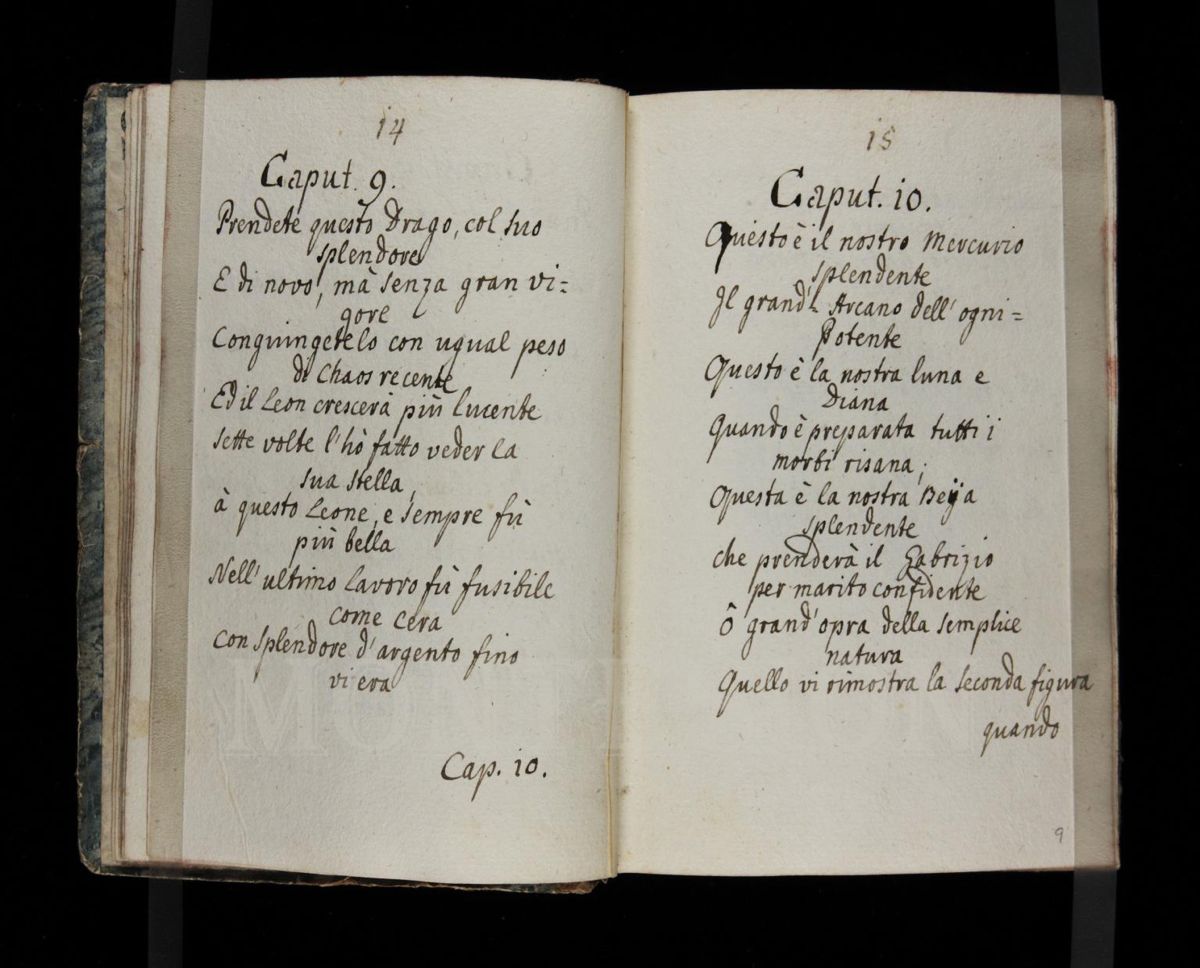 14
Caput. 9.
Prendete questo Drago, col suo
splendore
E di novo, mà senza gran vi=
gore
Conguingetelo con ugual peso
di Chaos recente
Ed il Leon crescerà più lucente
Sette volte l'hò fatto veder la
sua stella,
à questo Leone, e sempre fù
più bella
Nell'ultimo lavoro fù fusibile
come cera
con splendore d'argento fino
vi era
Cap. 10.
15
Caput. 10.
Questo è il nostro Mercurio
splendente
Il grand'- Arcano dell'ogni=
Potente
Questo è la nostra luna e
Diana
Quando è preparata tutti i
morbi risana;
Questa è la nostra Beÿa
splendente
che prenderà il Gabrizio
per marito confidente
Ô grand'opra della semplice
natura
Quello vi rimostra la seconda figura
quando
9